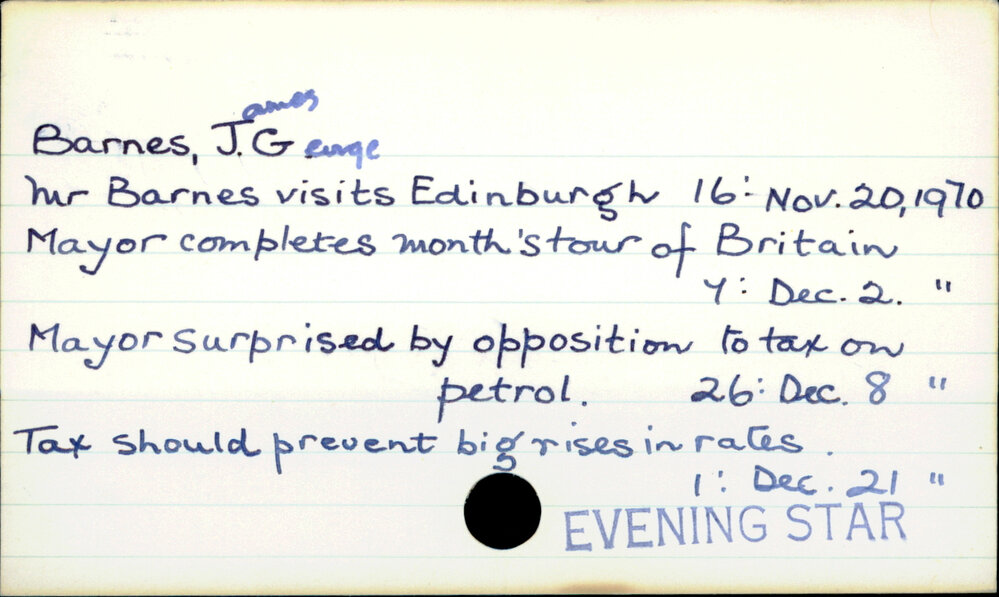 Barnes, J.ames G.eorge
Mr Barnes visits Edinburgh 16: Nov. 20, 1970
Mayor completes month's tour of Britain
7: Dec. 2. "
Mayor surprised by opposition to tax on
petrol. 26: Dec. 8 "
Tax should prevent big rises in rates.
1: Dec. 21 "
EVENING STAR